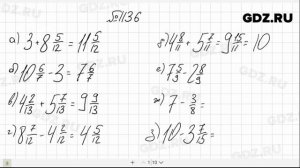 GDZ.RU
№1136
а) 3 + 8 5/12 = 11 5/12
б) 10 6/7 - 3 = 7 6/7
в) 4 2/13 + 5 7/13 = 9 9/13
г) 8 7/12 - 4 2/12 = 4 5/12
д) 4 8/11 + 5 7/11 = 9 15/11 = 10
е) 7 5/9 - 2 8/9
ж) 7 - 3/8 =
з) 10 - 3 7/15 =